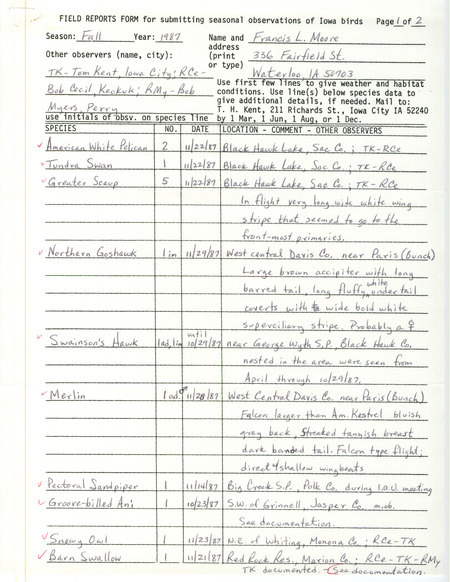 FIELD REPORTS FORM for submitting seasonal observations of Iowa birds Page 1 of 2
Season: Fall Year: 1987 Name and Francis L. Moore
address
Other observers (name, city): (print 336 Fairfield St.
or type)
TK-Tom Kent, Iowa City; RCe- Waterloo, IA 50703
Bob Cecil, Keokuk; RMy-Bob
Myers, Perry
Use first few lines to give weather and habitat
conditions. Use line(s) below species data to
give additional details, if needed. Mail to:
T. H. Kent, 211 Richards St., Iowa City IA 52240
use initials of obsv. on species line by 1 Mar, 1 Jun, 1 Aug, or 1 Dec.
SPECIES NO. DATE LOCATION - COMMENT - OTHER OBSERVERS
American White Pelican 2 11/22/87 Black Hawk Lake, Sac Co.; TK-RCe
Tundra Swan 1 11/22/87 Black Hawk Lake, Sac. Co.; TK-RCe
Greater Scaup 5 11/22/87 Black Hawk Lake, Sac Co.; TK-RCe
In flight very long wide white wing
stripe that seemed to go to the
front-most primaries.
Northern Goshawk 1 im 11/29/87 West central Davis Co. near Paris (Bunch)
Large brown accipiter with long
barred tail, long fluffy white under tail
coverts with wide bold white
superciliary stripe. Probably a ♀
Swainson's Hawk 1ad, 1im until 10/29/87 near George Wyth S.P., Black Hawk Co.
nested in the area were seen from
April through 10/29/87.
Merlin 1 ad. ♂ 11/28/87 West Central Davis Co. near Paris (Bunch)
Falcon larger than Am. Kestrel bluish
gray back, streaked tannish breast
dark banded tail. Falcon type flight;
direct & shallow wingbeats
Pectoral Sandpiper 1 11/14/87 Big Creek S.P., Polk Co. during I.O.U. meeting
Groove-billed Ani 1 10/23/87 S.W. of Grinnell, Jasper Co. m.ob.
See documentation.
Snowy Owl 1 11/23/87 N.E. of Whiting, Monona Co.; RCe-TK
Barn Swallow 1 11/21/87 Red Rock Res., Marion Co.; RCe-TK-RMy
TK documented. See documentation.